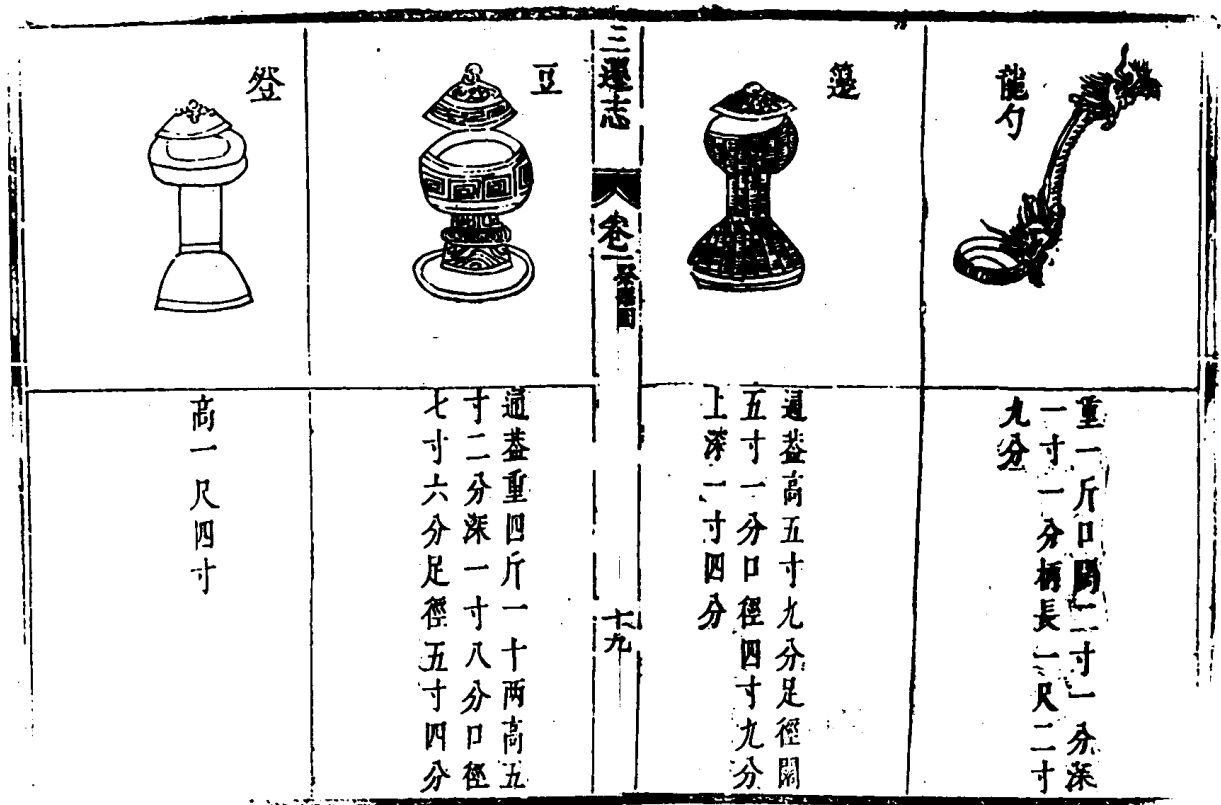 龍勺
重一斤口闊二寸一分深
一寸一分柄長一尺二寸
九分
籩
通葢高五寸九分足徑闊
五寸一分口徑四寸九分
上深一寸四分
三遷志
卷一
祭器圖
十九
豆
通葢重四斤一十两高五
寸二分深一寸八分口徑
七寸六分足徑五寸四分
豋
高一尺四寸